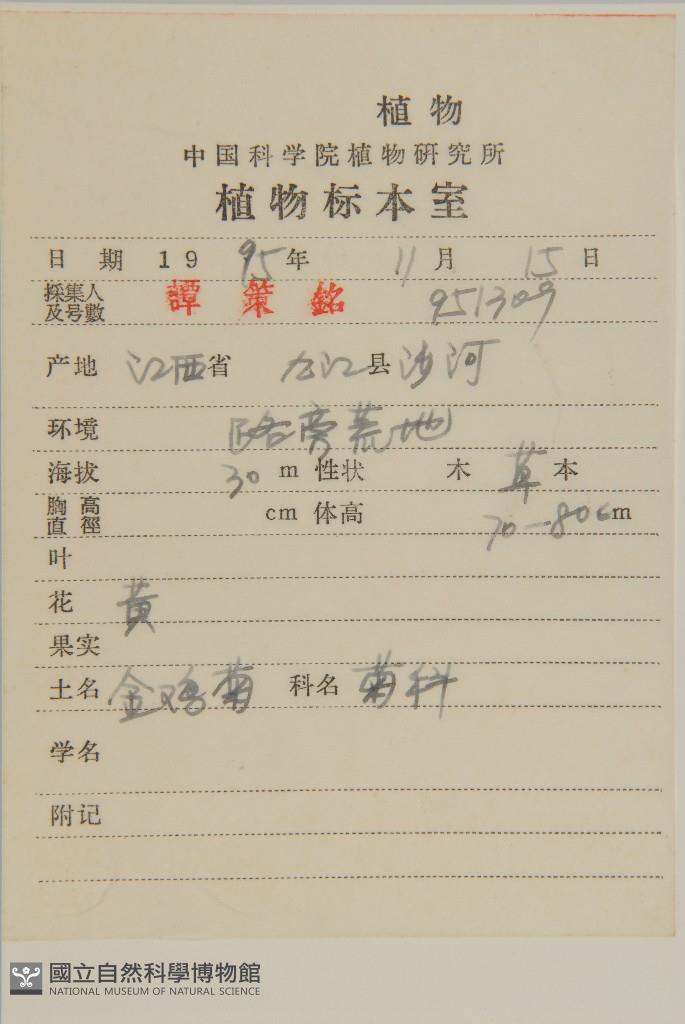 植物
中国科学院植物研究所
植物标本室
日 期 19 95 年 11 月 15 日
採集人及号數 譚策銘 951309
产地 江西省 九江县沙河
环境 路旁荒地
海拔 30 m 性状 木 草 本
胸高直徑 cm 体高 70-80cm
叶
花 黄
果实
土名 金鸡菊 科名 菊科
学名
附记
國立自然科學博物館
NATIONAL MUSEUM OF NATURAL SCIENCE